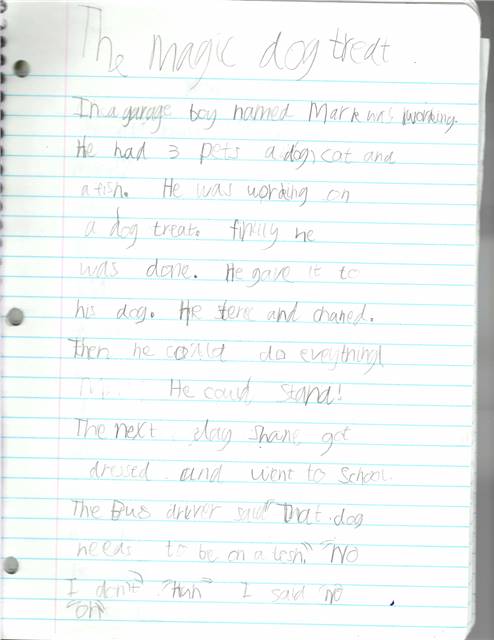 The magic dog treat.
In a garage boy named Mark was working.
He had 3 pets a dog, cat and
a fish. He was wording on
a dog treat. finily he
was done. He gave it to
his dog. He and chaned.
Then he could do eveything!
He could stand!
The next day Shane got
dressed and went to School.
The Bus driver said "That dog
needs to be on a lesh." "No
I don't" "Huh" I said "no
"oh"